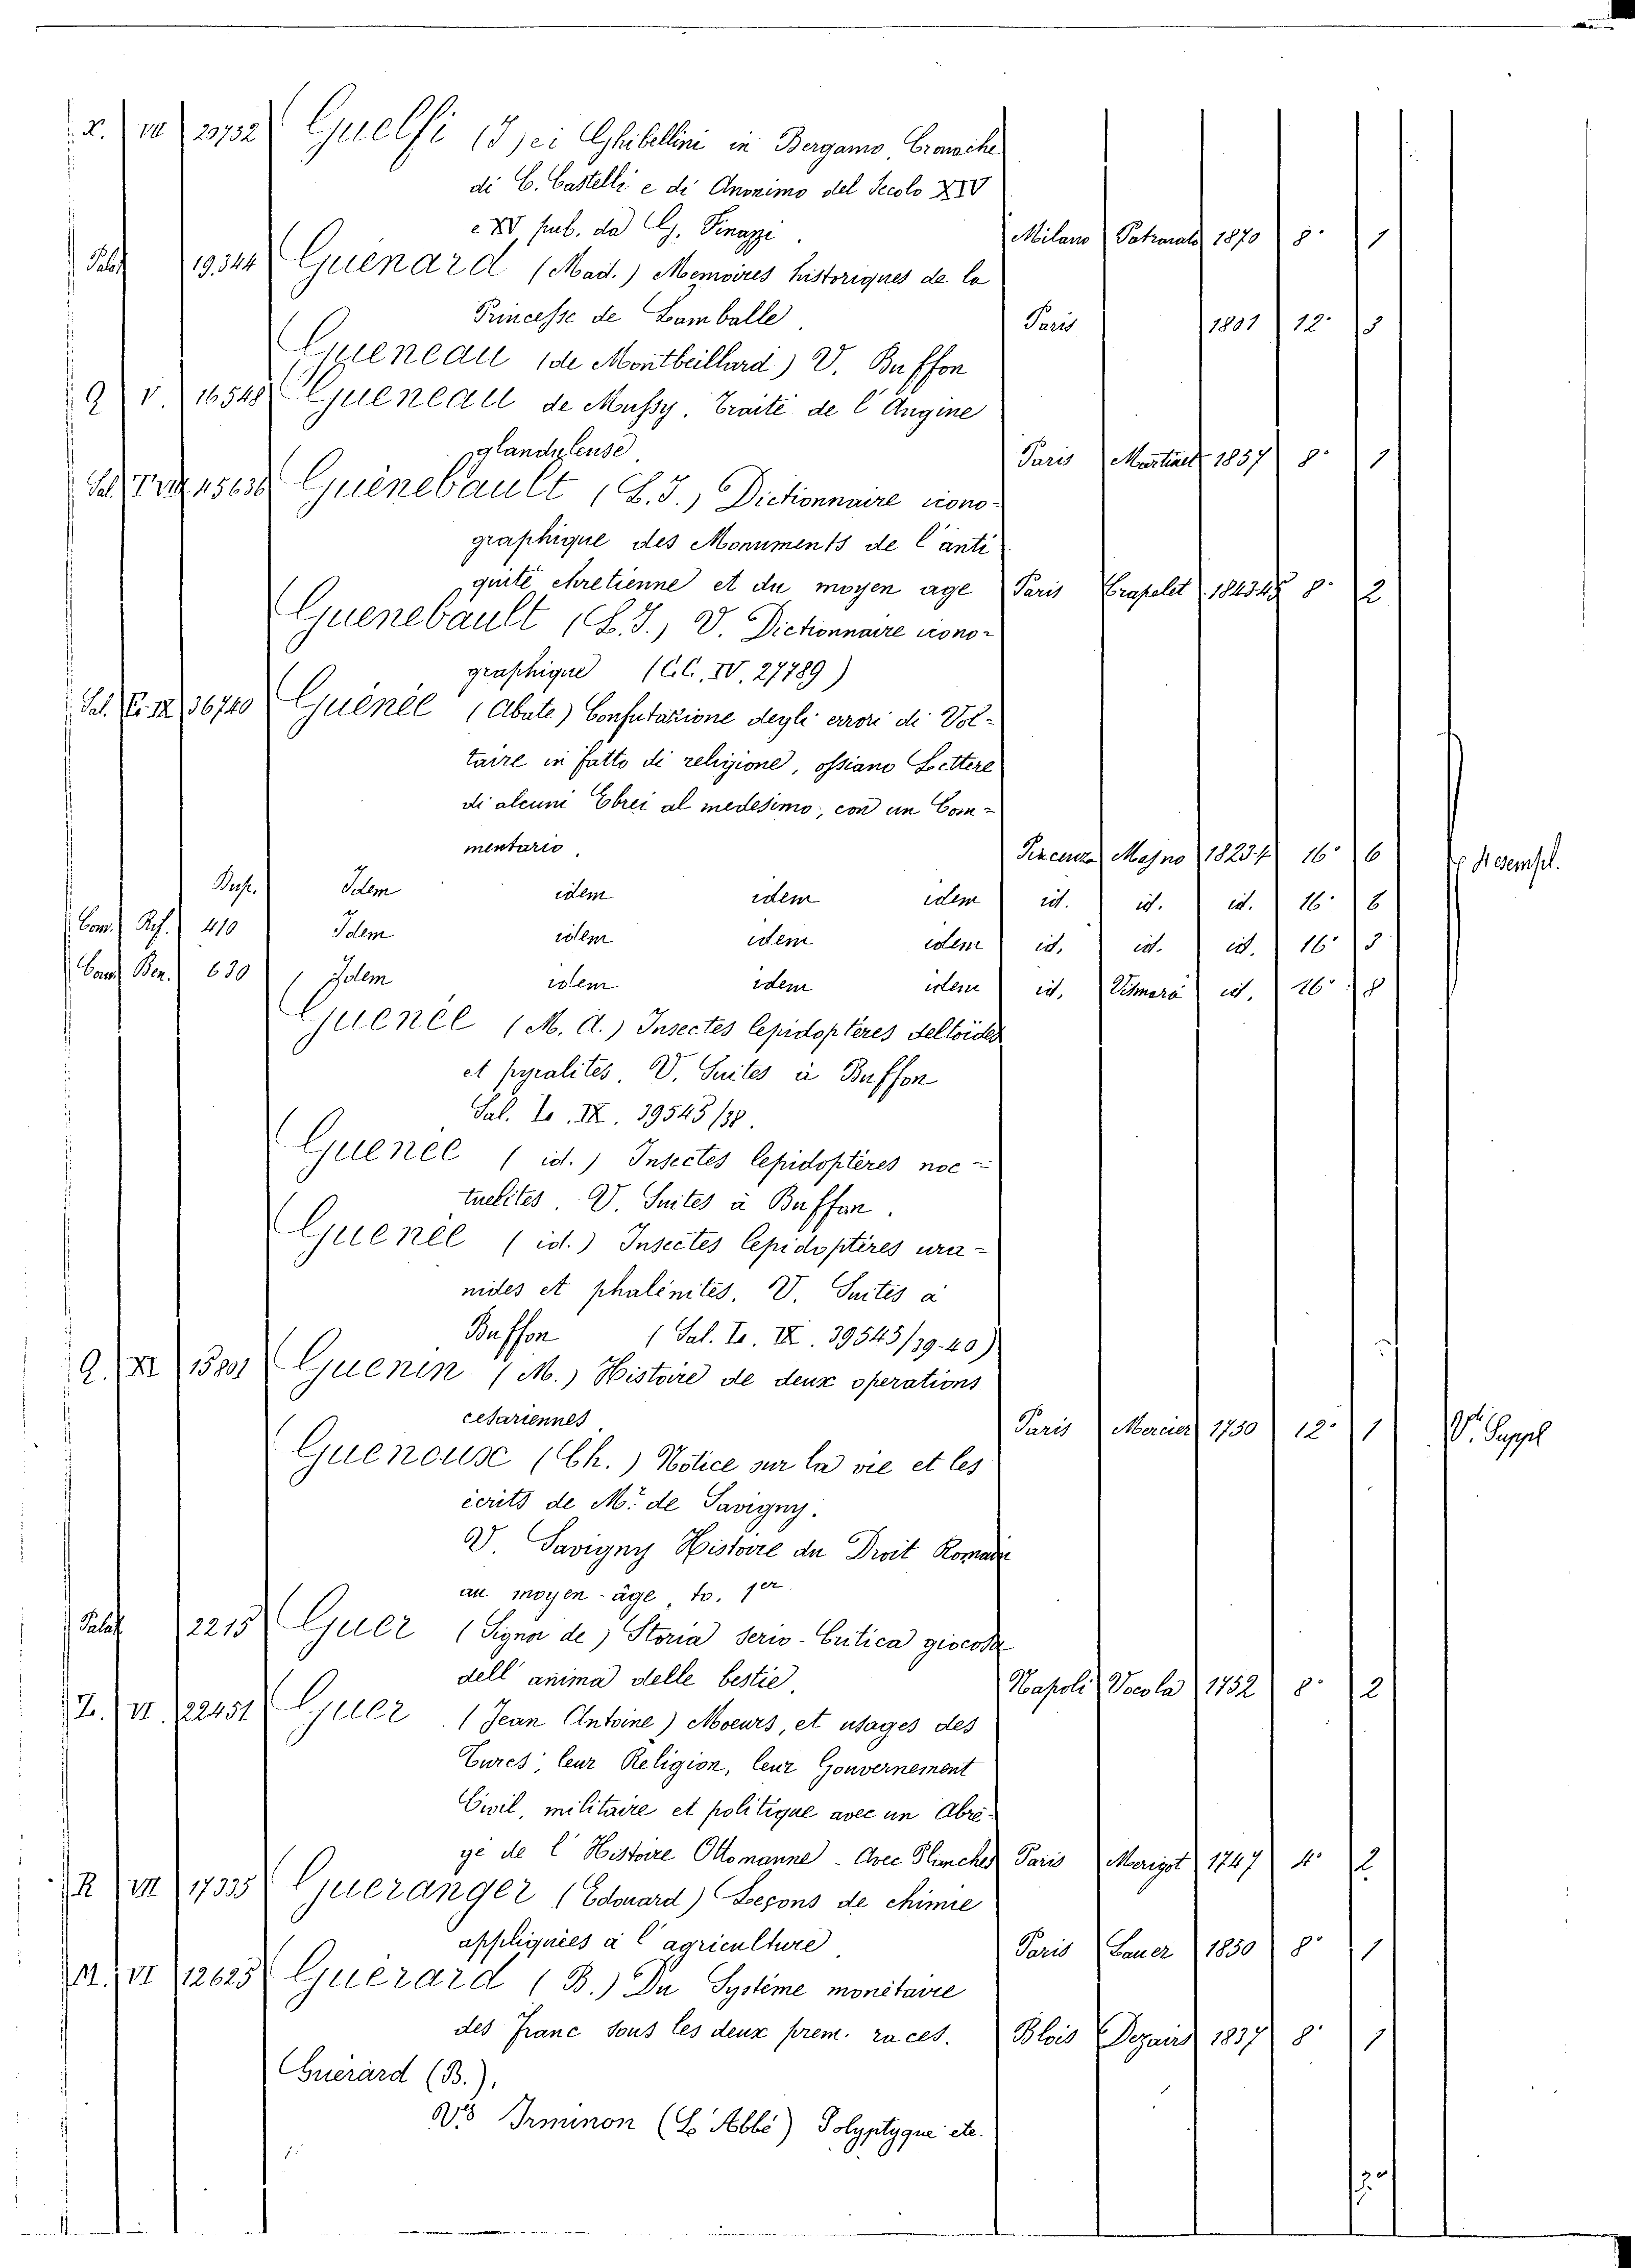 X. VII 20732 Guelfi (I) ei Ghibellini in Bergamo, Cronache
di C. Castelli e di Anonimo del Secolo XIV
e XV pub. da G. Finazzi. Milano 1870 8° 1
19344 Guénard (Mad.) Memoires historiques de la
Princesse de Lamballe. Paris 1801 12°
Gueneau (de Montbeillard) V. Buffon
Q V. 16548 Gueneau de Mussy. Traité de l'Angine
glanduleuse. Paris Martinet 1857 8° 1
Sal. 45636 Guènebault (L. J.) Dictionnaire icono-
graphique des Monuments de l'anti
quité chretienne et du moyen age Paris Crapelet 1843 45 8° 2
Guenebault (L. J.) V. Dictionnaire icono-
graphique (C.C. IV. 27789)
Sal. 36740 Guénée (Abate) Confutazione degli errori di Vol-
taire in fatto di religione, ossiano Lettere
di alcuni Ebrei al medesimo, con un Com-
mentario. Majno 1823.4 16° 6 4 esempl.
Idem idem idem idem id. id. id. 16° 6
Com. Rif. 410 Idem idem idem idem id. id. id. 16° 3
Cam. Ben. 630 Idem idem idem idem id. Vismara id. 16° 8
Guenée (M. A.) Insectes lepidoptères deltoides
et pyralites. V. Suites à Buffon
Sal. Te. IX. 39543/38.
Guenée (id.) Insectes lepidoptères noc-
tuelites. V. Suites à Buffon.
Guenée (id.) Insectes lepidoptères ura-
nides et phalénites. V. Suites à
Buffon (Sal. Te. IX. 39543/39-40)
Q. XI 15801 Guenin (M.) Histoire de deux operations
cesariennes Paris Mercier 1750 12° 1 V. Suppl
Guenoux (Ch.) Notice sur la vie et les
écrits de Mr. de Savigny.
V. Savigny Histoire du Droit Romain
au moyen-âge, to. 1er
2215 Guer (Signor de) Storia serio-Critica giocosa
dell'anima delle bestie. Napoli Vocola 1752 8° 2
Z. VI. 22451 Guer (Jean Antoine) Moeurs, et usages des
Turcs, leur Religion, leur Gouvernement
Civil, militaire et politique avec un Abré-
gé de l'Histoire Ottomanne - Avec Planches Paris Merigot 1747 4° 2
R VII 17335 Gueranger (Edouard) Leçons de chimie
appliquées à l'agriculture. Paris Lauer 1850 8° 1
M. VI 12625 Guérard (B.) Du Système monétaire
des Franc sous les deux prem. races. Blois Dezairs 1837 8° 1
Guérard (B.).
Irminon (L'Abbé) Polyptyque etc.